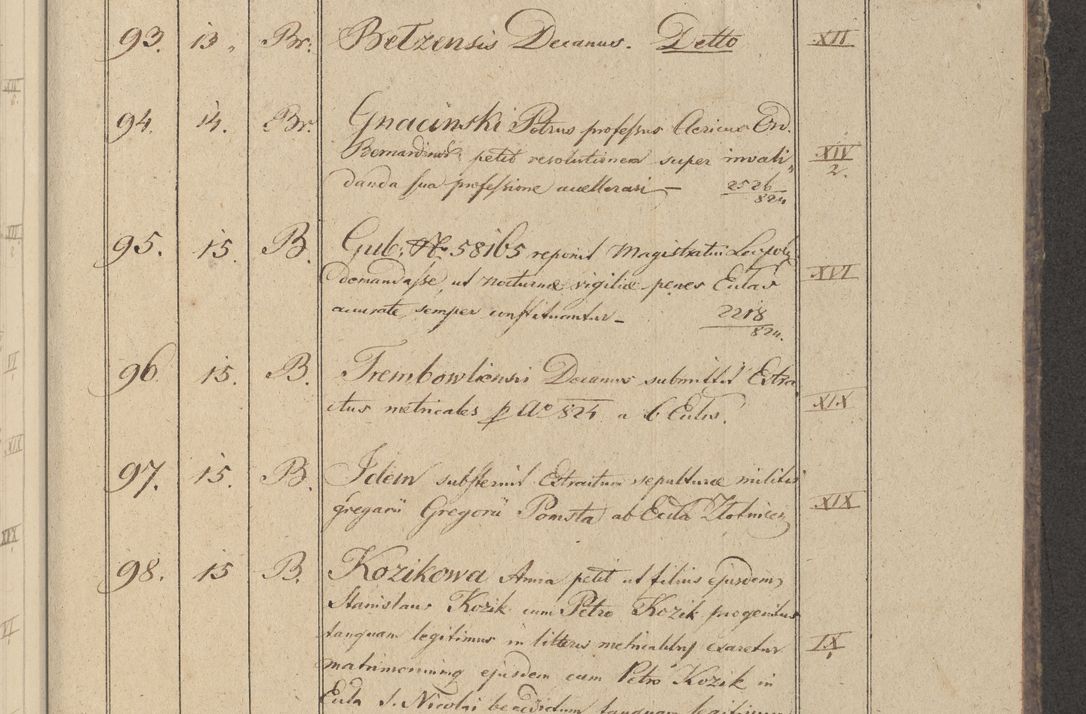 93. 13 „ Br. Bełzensis Decanus. Detto XII
94. 14. Br. Gnacinski Petrus professus Clericus Ord.
Bernardinus petit resolutionem super invali„ XIV
danda sua professione accellerari – 2526 2.
824
95. 15. B. Gub: N. 58165 reponit Magistratui Leopol.
demandasse, ut nocturnæ vigiliæ penes Eclas XVI
accurate semper constituantur – 2218
824.
96 15. B. Trembowliensis Decanus submittit Extra
ctus metricales p Aº 824 a 6 Eclis. XIX
97. 15. B. Idem substernit Extractum sepulturæ militis
gregarii Gregorii Pomsta ab Ecclа Zlotnicen XIX
98. 15 B. Kozikowa Anna petit ut filius ejusdem
Stanislaus Kozik cum Petro Kozik progenitus
tanquam legitimus in litteris metricalibus exaretur IX
matrimonium ejusdem cum Petro Kozik in
Ecla S. Nicolai benedictum tanquam legitimum